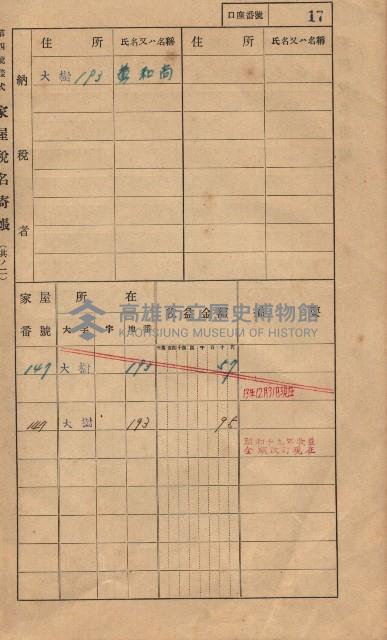 口座番號 17
第四號樣式 家屋稅名寄帳 (其ノ二)
納稅者
住所 氏名又ハ名稱 住所 氏名又ハ名稱
大樹 193 和尚
家屋番號 所在 大字 字 地番 收益金額 摘要
高雄市立歷史博物館
KAOHSIUNG MUSEUM OF HISTORY
147 大樹 193 57
13年12月31日現在
147 大樹 193 95
昭和十九年收益
金額改訂現在